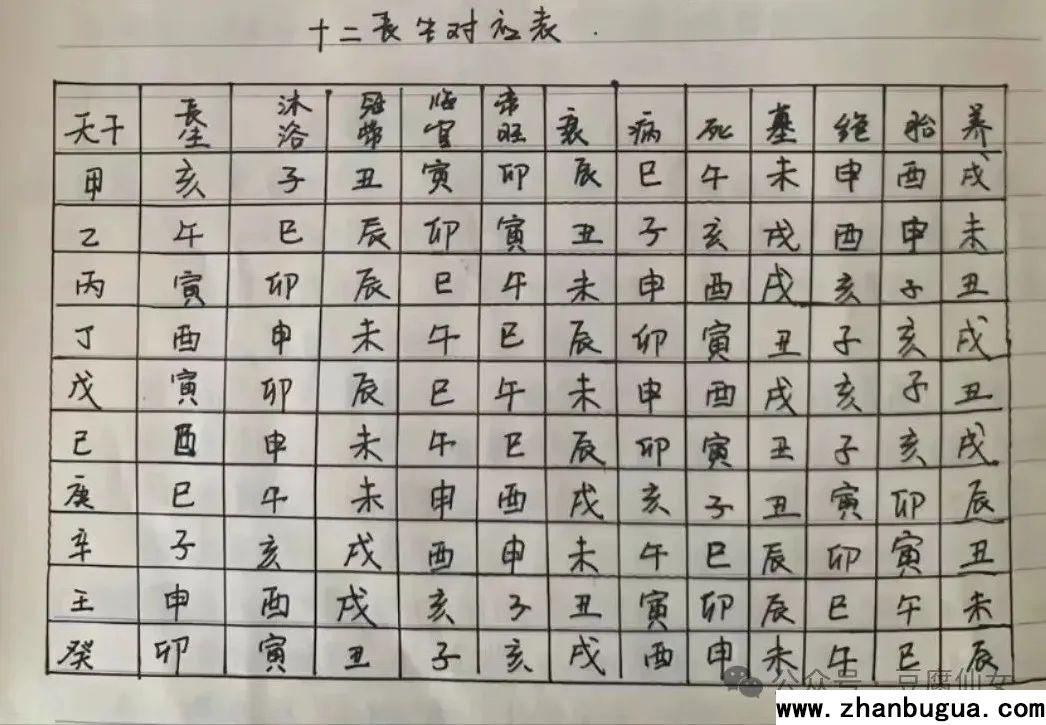 十二長生对应表.
天干 長生 沐浴 冠带 临官 帝旺 衰 病 死 墓 绝 胎 养
甲 亥 子 丑 寅 卯 辰 巳 午 未 申 酉 戌
乙 午 巳 辰 卯 寅 丑 子 亥 戌 酉 申 未
丙 寅 卯 辰 巳 午 未 申 酉 戌 亥 子 丑
丁 酉 申 未 午 巳 辰 卯 寅 丑 子 亥 戌
戊 寅 卯 辰 巳 午 未 申 酉 戌 亥 子 丑
己 酉 申 未 午 巳 辰 卯 寅 丑 子 亥 戌
庚 巳 午 未 申 酉 戌 亥 子 丑 寅 卯 辰
辛 子 亥 戌 酉 申 未 午 巳 辰 卯 寅 丑
王 申 酉 戌 亥 子 丑 寅 卯 辰 巳 午 未
癸 卯 寅 丑 子 亥 戌 酉 申 未 午 巳 辰
公众号 豆腐仙女
www.zhanbugua.com